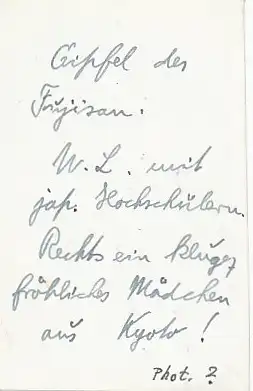 Gipfel des
Fujisan.
W. L. mit
jap. Hochschülern.
Rechts ein kluges
fröhliches Mädchen
aus Kyoto!
Phot. ?